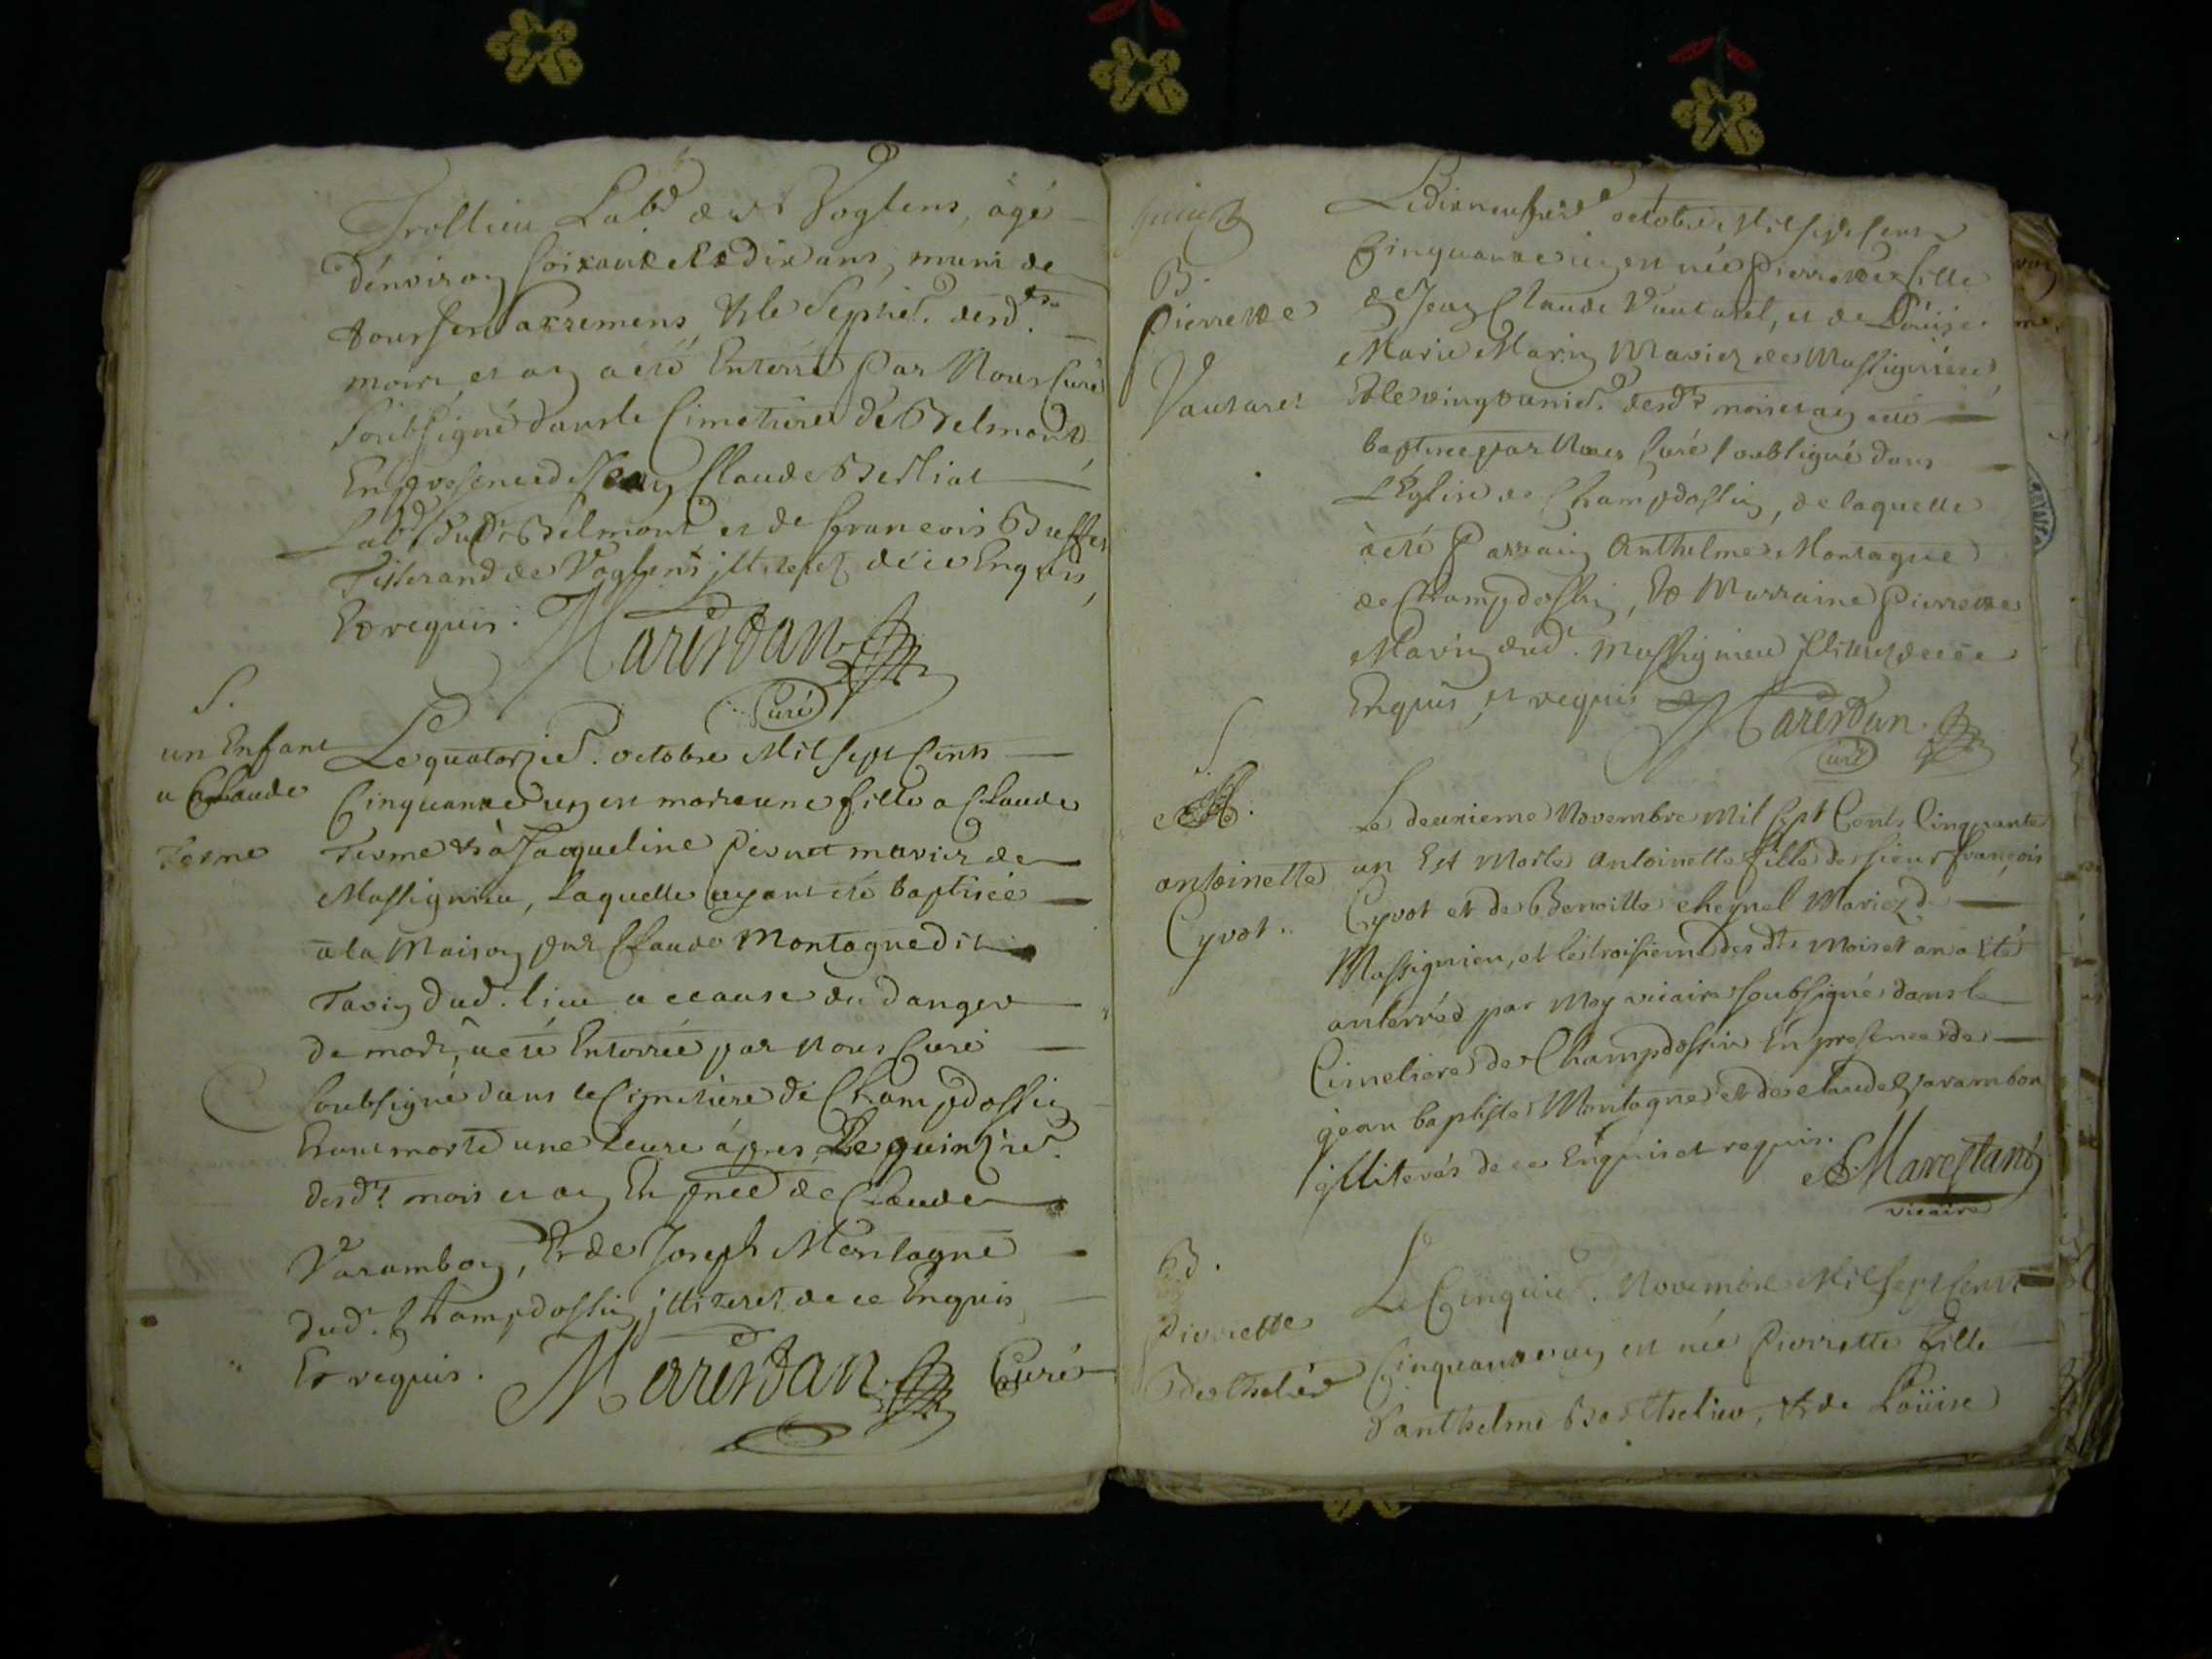 Trollieu Lab.^d de Voglens, agé
d'environ soixante et dix ans, muni de
tous ses Sacremens, et le Septie.^e desd.^ts
mois et an a eté Enterré par Nous Curé
Soubsigné dans le Cimetiere de Belmont
En presence de Jean Claude Berliat
Lab.^d dud.^t Belmont et de francois Buffet
Tisserand de Voglens illiterez de ce Enquis,
Et requis. Marestan
Curé
S.
un Enfant
a Claude
Terme
Le quatorzie.^e octobre Mil Sept Cents
Cinquante un est morte une fille a Claude
Terme et à Jacqueline Pernet mariez de
Massignieu, Laquelle ayant eté baptisée
a la Maison par Claude Montagne dit
Tavin dud. lieu a cause du danger
de mort, a eté Enterrée par Nous Curé
Soubsigné dans le Cimetiere de Champdossin
Etant morte une heure apres, Le quinzie.^e
desd.^ts mois et an En pnce de Claude
Varambon, Et de Joseph Montagne
dud. Champdossin illiterez de ce Enquis
Et requis. Marestan Curé
B.
Pierrette
Vautaret
Le dixneufvie.^e octobre Mil Sept Cents
Cinquante un est née Pierrette fille
de Jean Claude Vautaret, et de Loüise
Marie Marin Mariez de Massignieu,
Et le vingt unie.^e desd.^ts mois et an a eté
baptisee par Nous Curé soubsigné dans
L'Eglise de Champdossin, de laquelle
à eté Parrain Anthelme Montagne
de Champdossin, Et Marraine Pierrette
Marin dud. Massignieu illiterez de ce
Enquis et requis Marestan
Curé
S.
antoinette
Cyvot.
Le deuxieme Novembre Mil Sept Cents Cinquante
un Est Morte Antoinette fille de sieur françois
Cyvot et de Benoitte cheynel Mariez de
Massignieu, et le troisieme des d.^ts Mois et an a Eté
anterréé par Moy vicaire soubsigné dans le
Cimetiere de Champdossin En presence de
jean baptiste Montagne et de claude varambon
illiterés de ce Enquis et requis.
Marestan
vicaire
B.
Pierrette
Berthelier
Le Cinquie.^e Novembre Mil Sept Cents
Cinquante un est née Pierrette fille
d'anthelme Berthelier, et de Loüise